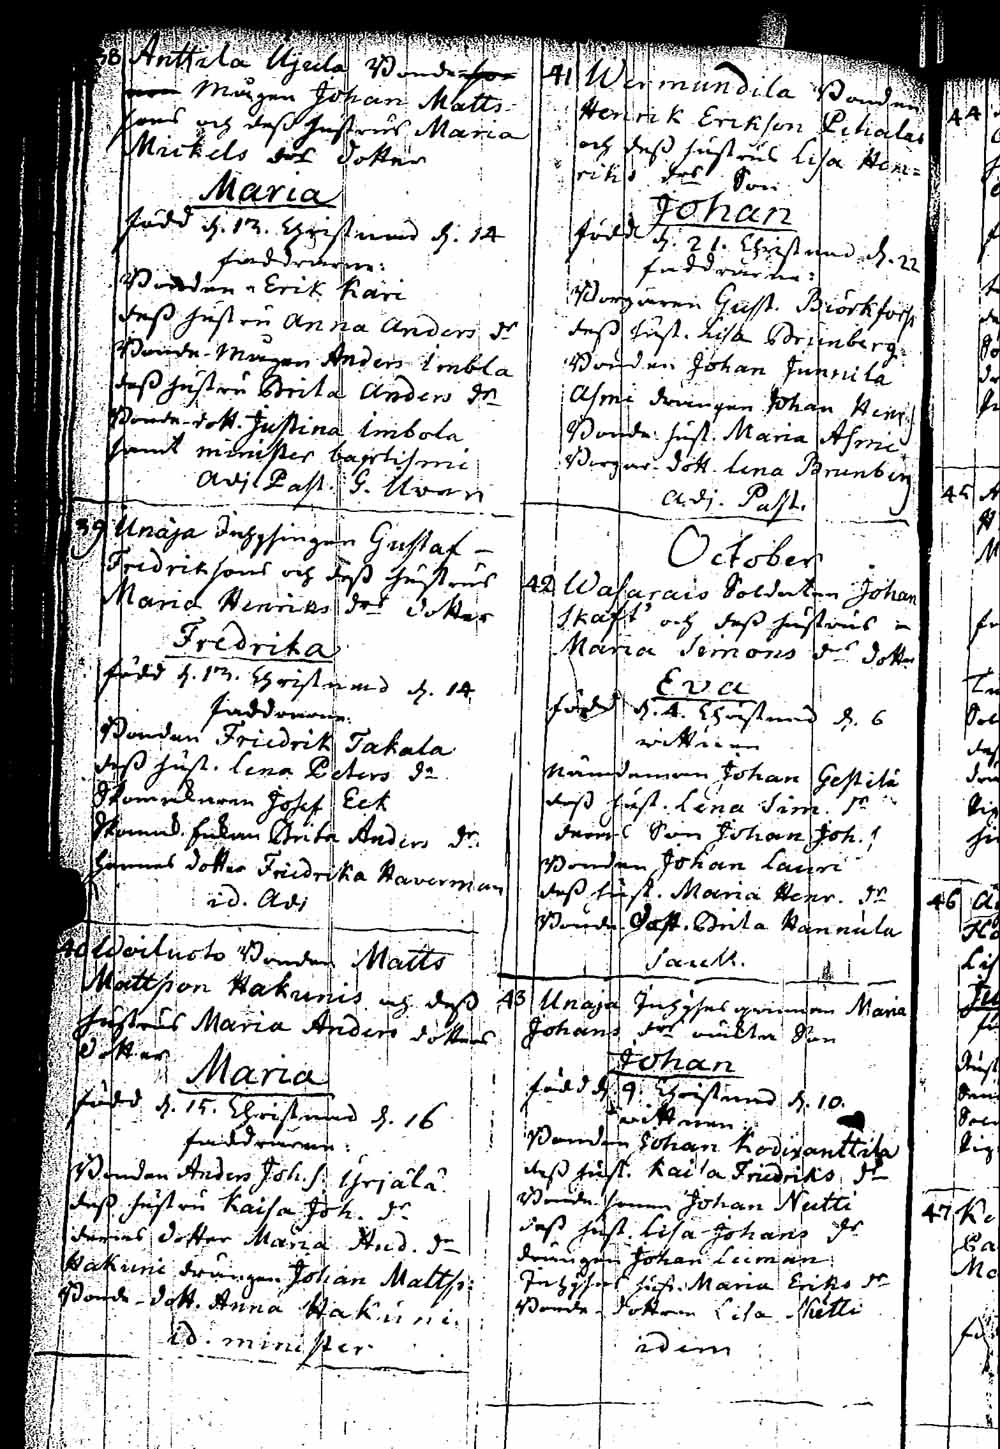 38 Anttila Ujula Bonde
Mågen Johan Matts
sons och dess hustrus Maria
Mickels drs dotter
Maria
född d. 13. Christnad d. 14
faddrarne:
Bonden Erik Kari
dess hustru Anna Anders dr
Bonde-Mågen Anders Imbla
dess hustru Brita Anders dr
Bonde-dott. Justina Imbola
samt minister baptismi
Adj. Past. G.
39 Unaja Inhysingen Gustaf
Fredrikssons och dess hustrus
Maria Henriks drs dotter
Fredrika
född d. 13. Christnad d. 14
faddrarne:
Bonden Friedrik Takala
dess hust. Lena Peters dr
Skomakaren Josef Eek
Skomak. Enkan Brita Anders dr.
hennes dotter Friedrika Haverman
id. Adj
40 Woiluoto Bonden Matts
Mattsson Hakunis och dess
hustrus Maria Anders dotters
dotter
Maria
född d. 15. Christnad d. 16
faddrarne:
Bonden Anders Joh. S. Yrjälä
dess hustru Kaisa Joh. dr
deras dotter Maria And. dr
Hakuni drängen Johan Mattss:
Bonde-dott. Anna Hakuni.
id. minister
41 Wermundila Bonden
Henrik Erikson Pihalas
och dess hustrus Lisa Hen=
riks drs Son
Johan
född d. 21. Christnad d. 22
faddrarne:
Borgaren Gust. Biörkfors
dess hust. Lisa Brunberg.
Bonden Johan Junnila
Asmi drängen Johan Henr.
Bonde hust. Maria Asmi
Borgar. dott. Lena Brunberg
Adj. Past.
October
42 Wasarais Soldaten Johan
Skaft och dess hustrus
Maria Simons drs dotter
Eva
född d. 4. Christnad d. 6
wittnen
Nämdeman Johan Gestilä
dess hust. Lena Sim. dr
deras Son Johan Joh. S
Bonden Johan Lauri
dess hust. Maria Henr. dr
Bonde Dott. Brita Hannula
43 Unaja Inhyses qvinnan Maria
Johans drs oäkta Son
Johan
född d. 9. Christnad d. 10.
wittnen
Bonden Johan Kodixanttila
dess hust. Kaisa Friedriks dr
Bonde sonen Johan Neitti
dess hust. Lisa Johans dr
drängen Johan Leiman
Inhyses hust. Maria Eriks dr
Bonde-dottren Lisa
idem
44
45
46
47